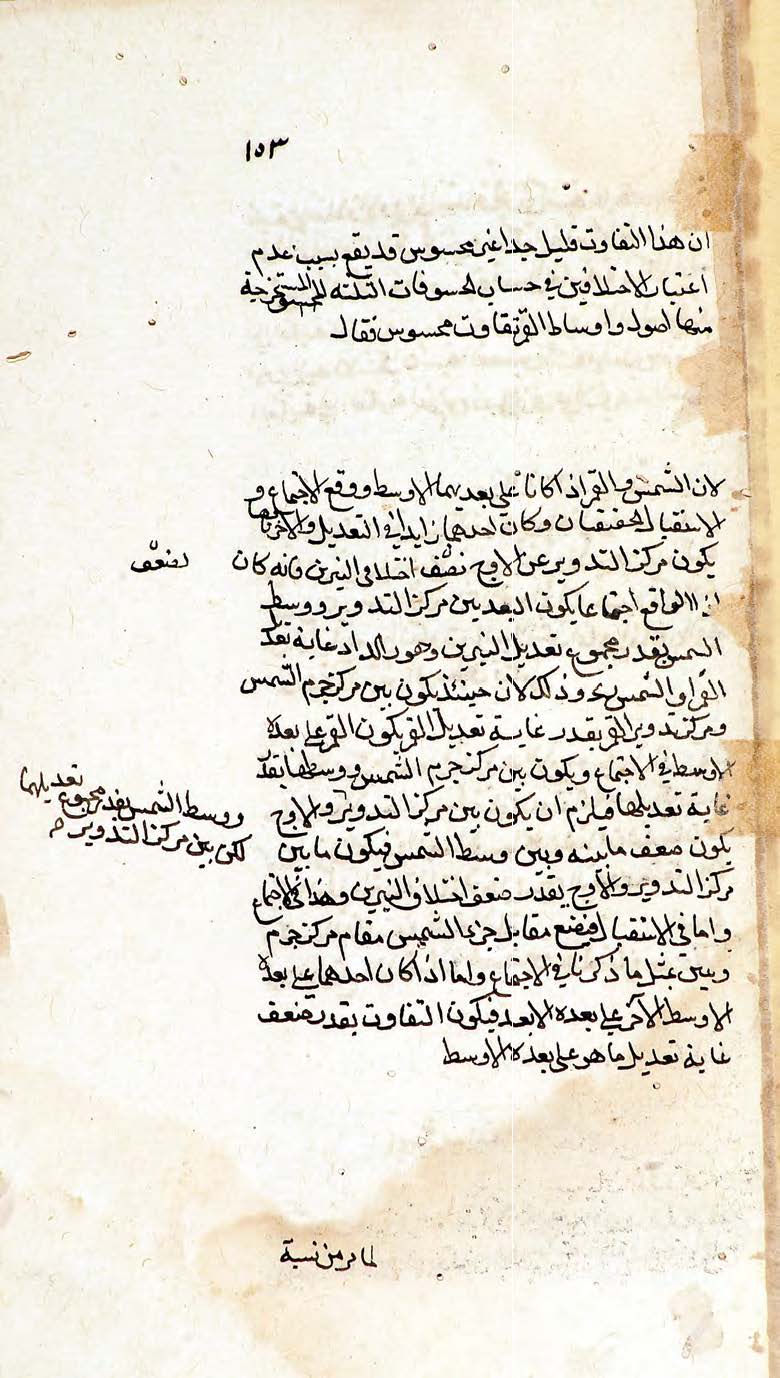 ١٥٣
ان هذا التفاوت قليل جدا غير محسوس قد يقع بسبب عدم
اعتبار الاختلافين في حساب الخسوفات الثلثه المستخرجة
منها اصول واوساط القمر تفاوت محسوس فقال
لان الشمس والقمر اذا كانا على بعديهما الاوسط ووقع الاجتماع و
الاستقبال الحقيقيان وكان احدهما زايدا في التعديل والاخر ناقصا
يكون مركز التدوير عن الاوج نصف اختلافي النيرين فانه كان
لضعف
الواقع اجتماعا يكون البعد بين مركز التدوير ووسط
الشمس بقدر مجموع تعديل النيرين وهو غاية تعديل
القمر او الشمس وذلك لان حينئذ يكون بين مركز جرم الشمس
ومركز تدوير القمر بقدر غاية تعديل القمر يكون القمر على بعده
الاوسط في الاجتماع ويكون بين مركز جرم الشمس ووسطها بقدر
غاية تعديلها فيلزم ان يكون بين مركز التدوير والاوج
ووسط الشمس بقدر مجموع تعديلهما
لكن بين مركز التدوير
يكون ضعف ما بينه وبين وسط الشمس فيكون ما بين
مركز التدوير والاوج بقدر ضعف اختلاف النيرين وهذا في الاجتماع
واما في الاستقبال فيضع مقابل جزء الشمس مقام مركز جرم
وبين بمثل ما ذكرنا في الاجتماع واما اذا كان احدهما على بعده
الاوسط الآخر على بعده الابعد فيكون التفاوت بقدر ضعف
غاية تعديل ما هو على بعده الاوسط
لما مر من نسبة